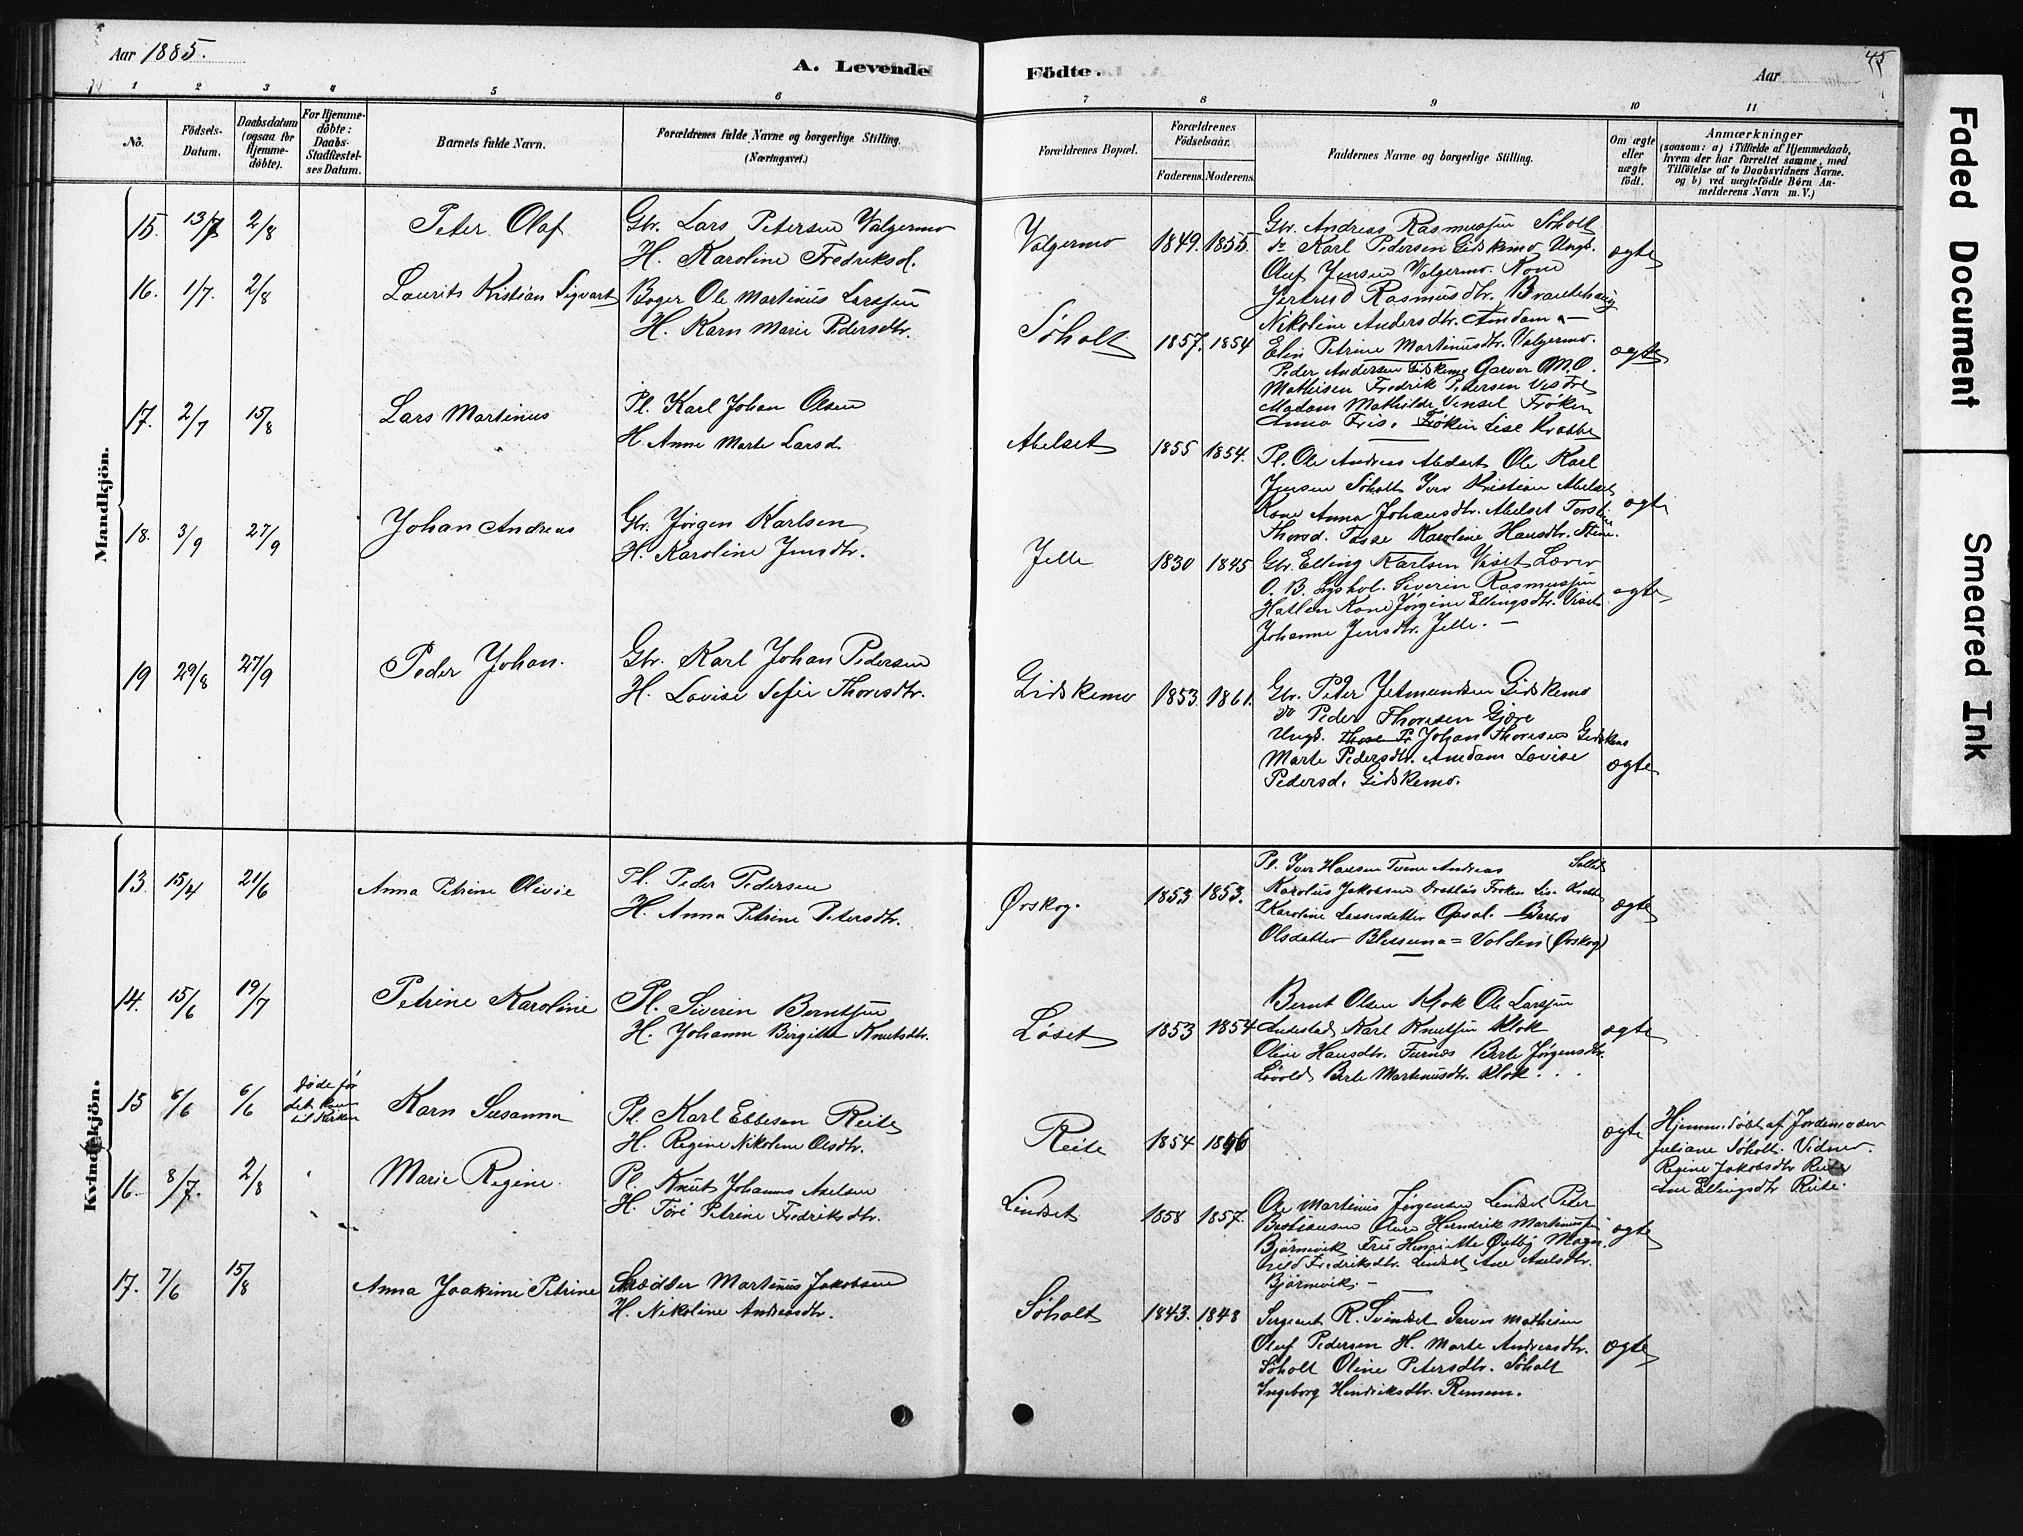 Aar 1885.
A. Levende Födte.
Aar
45
1 2 3 4 5 6 7 8 9 10 11
No.
Födsels-Datum.
Daabsdatum (ogsaa for Hjemme-döbte).
For Hjemme-döbte: Daabs-Stadfæstel-ses Datum.
Barnets fulde Navn.
Forældrenes fulde Navne og borgerlige Stilling. (Næringsvei.)
Forældrenes Bopæl.
Forældrenes Födselsaar.
Faderens. Moderens.
Faddernes Navne og borgerlige Stilling.
Om ægte eller uægte födt.
Anmærkninger
(saasom: a) i Tilfælde af Hjemmedaab, hvem der har forrettet samme, med Tilföielse af to Daabsvidners Navne. og b) ved uægtefödte Börn An-melderens Navn m. V.)
Mandkjön.
15. 13/7 2/8 Peter Olaf
Gbr. Lars Petersen Valgermo
H. Karoline Fredriksd.
Valgermo 1849. 1855.
Gbr. Andreas Rasmussen Søholt
do Karl Pedersen Gidskemo Ungk.
Oluf Jensen Valgermo. Kone
Gertrud Rasmusdtr. Brautehaug
Nikoline Andersdtr. Amdam
Elin Petrine Martinusdtr. Valgermo.
ægte
16. 1/7. 2/8 Laurits Kristian Sigvart
Bager Ole Martinus Larssen
H. Karn Marie Pedersdtr.
Søholt 1857. 1854
Peder Andersen Gidskemo Garver M.O.
Mathisen Fredrik Petersen Vestre
Madam Mathilde Vensel Frøken
Anna Friis. Frøken Lise Krabbe
ægte
17. 2/7 15/8 Lars Martinus
Pl. Karl Johan Olsen
H. Anne Marte Larsd.
Abelset 1855 1854.
Pl. Ole Andreas Abelset Ole Karl
Jensen Søholt Iver Kristian Abelset
Kone Anna Johansdtr. Abelset Torstine
Thorsd. Tosse Karoline Hansdtr. Stene.
ægte
18. 3/9 27/9 Johan Andreas
Gbr. Jørgen Karlsen
H. Karoline Jensdtr.
Jelle 1830 1845
Gbr. Elling Karlsen Viset Lærer
O. B. Severin Rasmussen
Hatlen Kone Jørgine Ellingsdtr. Viset
Johanne Jensdtr. Jelle. —
ægte
19 29/8 27/9 Peder Johan.
Gbr. Karl Johan Pedersen
H. Lovise Sefie Thoresdtr.
Gidskemo 1853. 1861.
Gbr. Peter Jetmundsen Gidskemo
do Peder Thoresen Gjære
Ungk. Johan Thoresen Gidskemo
Marte Pedersdtr. Amdam Lovise
Pedersd. Gidskemo.
ægte
Kvindekjön.
13. 15/4 21/6 Anna Petrine Olivie
Pl. Peder Pedersen
H. Anna Petrine Petersdtr.
Ørskog. 1853 1853.
Pl. Iver Hansen Tuene Andreas
Karolus Jakobsen Frøken Lise Krabbe
Karoline Lassesdatter Opsal. Barbro
Olsdatter Volden (Ørskog)
ægte
14. 15/6 19/7 Petrine Karoline
Pl. Siverin Berntsen
H. Johanne Birgitte Knutsdtr.
Løset 1853 1854
Bernt Olsen Klok Ole Larssen
Andestad Karl Knutsen Klok
Oline Hansdtr. Furnes Berte Jørgensdtr.
Løvold Berte Martinusdtr. Klok.
ægte
15 6/6 6/6
Døde før det kom til Kirken
Karn Susanna
Pl. Karl Ebbesen Reite
H. Regine Nikoline Olsdtr.
Reite 1854 1856
ægte
Hjemmedöbt af Jordemoder
Juliane Søholt. Vidner.
Regine Jakobsdtr Reite
Ane Ellingsdtr Reite.
16. 8/7. 2/8 Marie Regine.
Pl. Knut Johannes Axelsen
H. Tore Petrine Fredriksdtr.
Lindset 1858 1857.
Ole Martinus Jørgensen Lindset Peter
Bastiansen Aure Hendrik Martinussen
Bjørnevik Fru Henriette Østby Magn
hild Fredriksdtr. Lindset Ane Axelsdtr.
Bjørnevik. —
ægte
17. 7/6 15/8 Anna Joakime Petrine
Skrædder Martinus Jakobsen
H. Nikoline Andreasdtr.
Søholt 1843. 1848
Sergeant R. Svindset Garver Mathisen
Oluf Pedersen H. Marte Andreasdtr.
Søholt Oline Petersdtr. Søholt
Ingeborg Hindriksdtr. Remem.
ægte
Faded Document
Smeared Ink